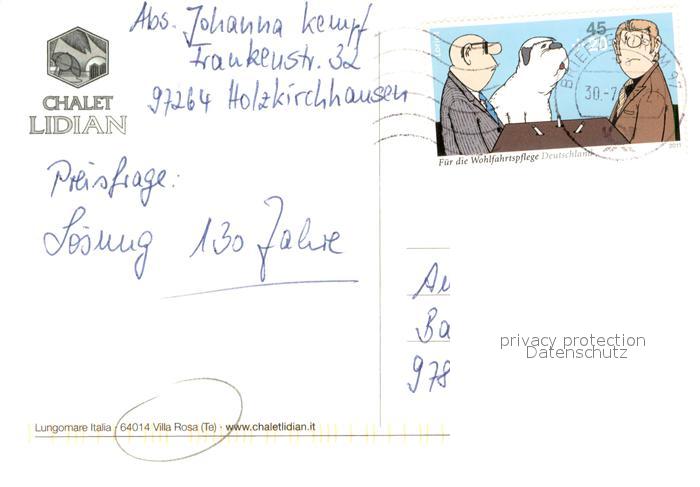 Abs. Johanna Kempf
Frankenstr. 32
97264 Holzkirchhausen
CHALET
LIDIAN
Preisfrage:
Lösung 130 Jahre
Lungomare Italia - 64014 Villa Rosa (Te) - www.chaletlidian.it
Loriot
45
+20
BRIEFZENTRUM 97
30.-7.
Für die Wohlfahrtspflege Deutschland
2011
Au
Ba
978
privacy protection
Datenschutz